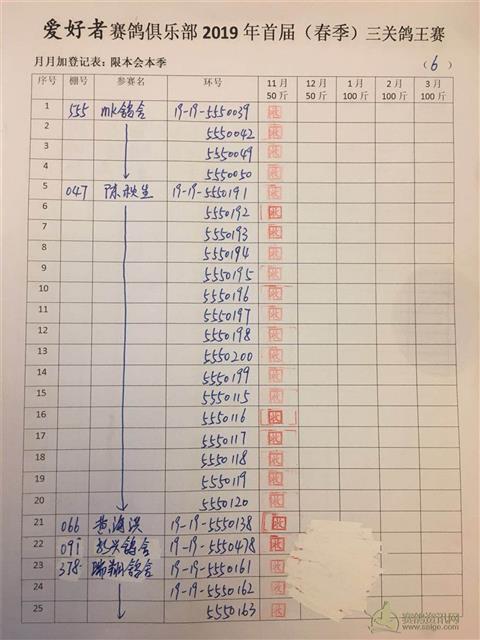 爱好者赛鸽俱乐部 2019 年首届（春季）三关鸽王赛
月月加登记表：限本会本季 （6）
序号 棚号 参赛名 环号 11月 50斤 12月 50斤 1月 100斤 2月 100斤 3月 100斤
1 555 mk鸽舍 19-19-5550039
2 5550042
3 5550049
4 5550050
5 047 陈秋生 19-19-5550191
6 5550192
7 5550193
8 5550194
9 5550195
10 5550196
11 5550197
12 5550198
13 5550200
14 5550199
15 5550115
16 5550116
17 5550117
18 5550118
19 5550119
20 5550120
21 066 黄海洪 19-19-5550138
22 091 兴鸽舍 19-19-5550478
23 378 瑞翔鸽舍 19-19-5550161
24 19-19-5550162
25 5550163
赛鸽资讯网
www.saige.com